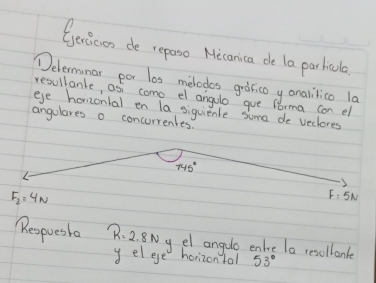 Ejercicios de repaso Mécanica de la particula.
Determinar por los métodos gráfico y analítico la
resultante, asi como el angulo que forma con el
eje horizontal en la siguiente suma de vectores
angulares o concurrentes.
145°
F₂=4N
F=5N
Respuesta R=2.8N y el angulo entre la resultante
y el eje horizontal 53°